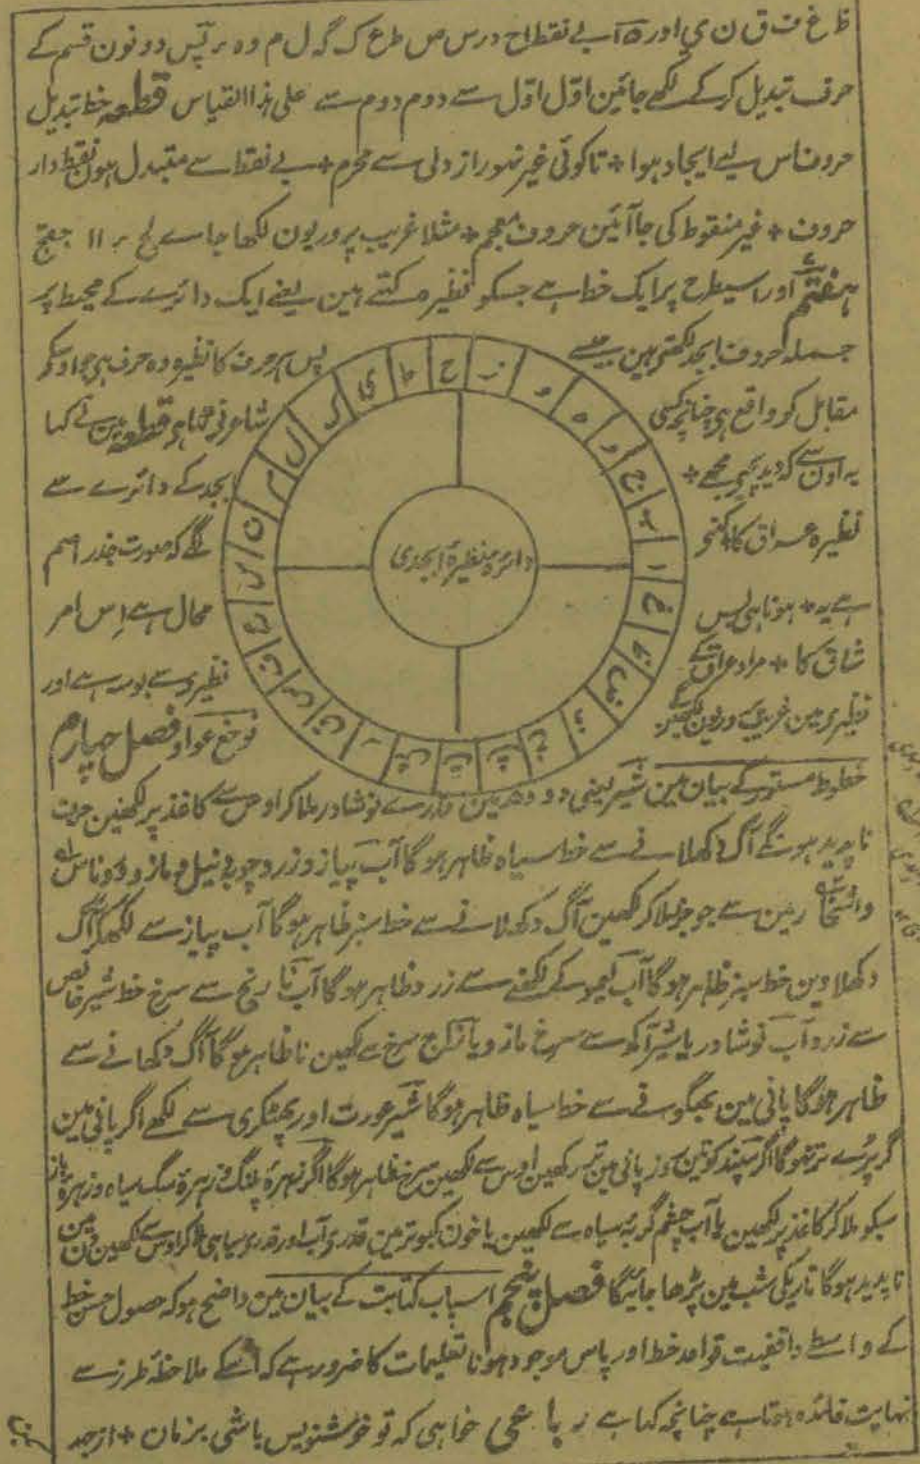 ظ غ ف ق ن ي اور ۱۵ بے نقط ا ح د ر س ص ط ع ک گ ل م و ہ ء پس دونون قسم کے
حرف تبدیل کر کے لکھے جائین اوّل اوّل سے دوم دوم سے علی ہذا القیاس قطعہ خط تبدیل
حروف اس لیے ایجاد ہوا + تا کوئی غیر نہو راز دلی سے محرم + بے نقط سے متبدل ہون نقط دار
حروف + غیر منقوط کی جا آئین حروف معجم + مثلا غریب پرور یون لکھا جاے
ہفتم اور اسیطرح پر ایک خط ہے جسکو نظیرہ کہتے ہین یعنے ایک دائرے کے محیط پر
جملہ حروف ابجد لکھتی ہین جیسے
پس ہر حرف کا نظیرہ وہ حرف ہی جو اوسکو
مقابل کو واقع ہی چنانچہ کسی
شاعر نے قطعہ مین نے کہا
یہ اون سے کہ دید یجیے مجھے +
ابجد کے دائرے سے
نظیرہ عراق کا
لگے کہ صورت جذر اصم
ہے یہ + ہونا ہی بس
محال ہے اِس امر
شاق کا + مراد عراق کے
نظیرے سے بوسہ ہے اور
نظیری مین غریب
فصل چہارم
ا ب ج د ہ و ز ح ط ی ک ل م ن س ع ف ص ق ر ش ت ث خ ذ ض ظ غ
دائرہ نظیرۂ ابجدی
خطوط مستور کے بیان مین شیر یعنی دودھ مین قدرے نوشادر ملا کر اوس سے کاغذ پر لکھین حرف
ناپدید ہونگے آگ دکھلانے سے خط سیاہ ظاہر ہوگا آب پیاز و زرد چوب و نیل و مازو
مین سے جو جز ملا کر لکھین آگ دکھلانے سے خط سبز ظاہر ہوگا آب پیاز سے لکھکر آگ
دکھلاوین خط سبز ظاہر ہوگا آب لیمو کے لکھنے سے زرد ظاہر ہوگا آب نارنج سے سرخ خط شیر خالص
سے زرد آب نوشادر یا شیر آکو سے سرخ مازو یا زاج سرخ سے لکھین نا ظاہر ہوگا آگ دکھانے سے
ظاہر ہوگا پانی مین بھگونے سے خط سیاہ ظاہر ہوگا شیر عورت اور پھٹکری سے لکھے اگر پانی مین
گر پڑے تر نہوگا اگر سپند کو تین روز پانی مین تر رکھین اوس سے لکھین سرخ ظاہر ہوگا اگر زہرۂ پلنگ و زہرۂ سگ سیاہ و زہرۂ باز
سبکو ملا کر کاغذ پر لکھین یا آب چشم گربۂ سیاہ سے لکھین یا خون کبوتر مین قدری آب اور قدری سیاہی ملا کر اوس سے لکھین دن مین
ناپدید ہوگا تاریکی شب مین پڑھا جائیگا فصل پنجم اسباب کتابت کے بیان مین واضح ہو کہ حصول حسن خط
کے واسطے واقفیت قواعد خط اور پاس موجود ہونا تعلیمات کا ضرور ہے کہ اسکے ملاحظۂ طرز سے
نہایت فائدہ ہوتا ہے چنانچہ کہا ہے رباعی خواہی کہ تو خوشنویس باشی بزمان + از جد